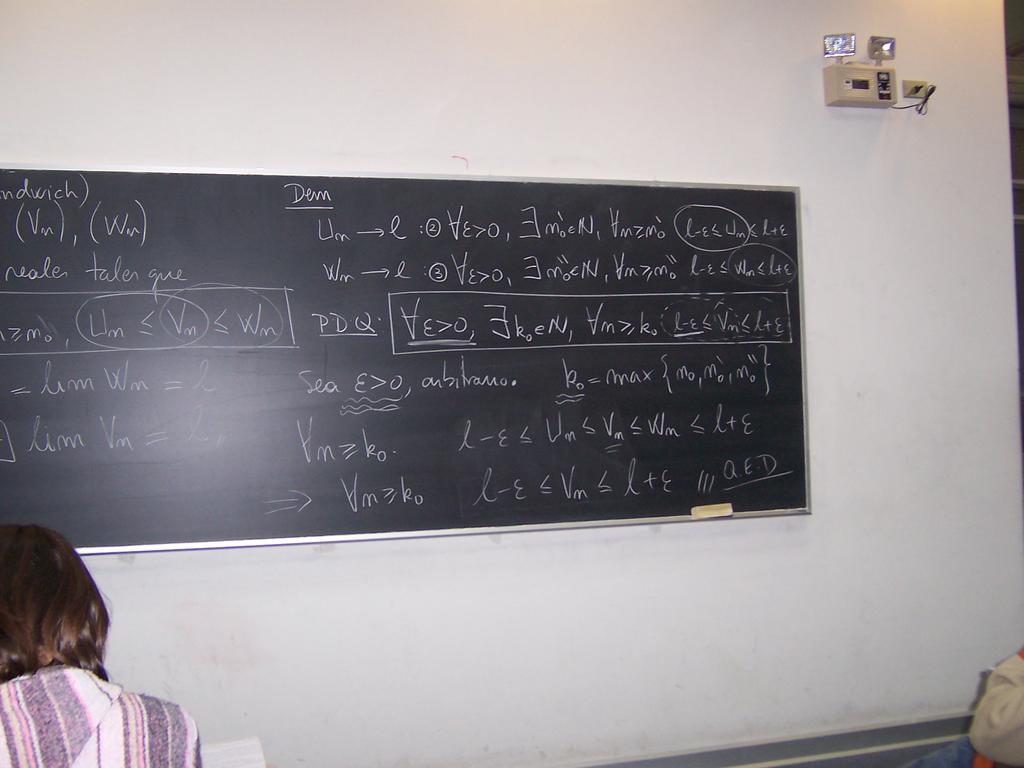 ndwich)
(Vn), (Wn)
reales tales que
n≥n₀, Un ≤ Vn ≤ Wn
= lim Wn = l
lim Vn = l,
Dem
Un → l : ② ∀ε>0, ∃ n₀'∈ℕ, ∀n≥n₀' l-ε≤Un≤l+ε
Wn → l : ③ ∀ε>0, ∃ n₀''∈ℕ, ∀n≥n₀'' l-ε≤Wn≤l+ε
P.D.Q. ∀ε>0, ∃k₀∈ℕ, ∀n≥k₀ l-ε≤Vn≤l+ε
Sea ε>0, arbitrario. k₀=max{n₀, n₀', n₀''}
∀n≥k₀. l-ε ≤ Un ≤ Vn ≤ Wn ≤ l+ε
⇒ ∀n≥k₀ l-ε ≤ Vn ≤ l+ε /// Q.E.D